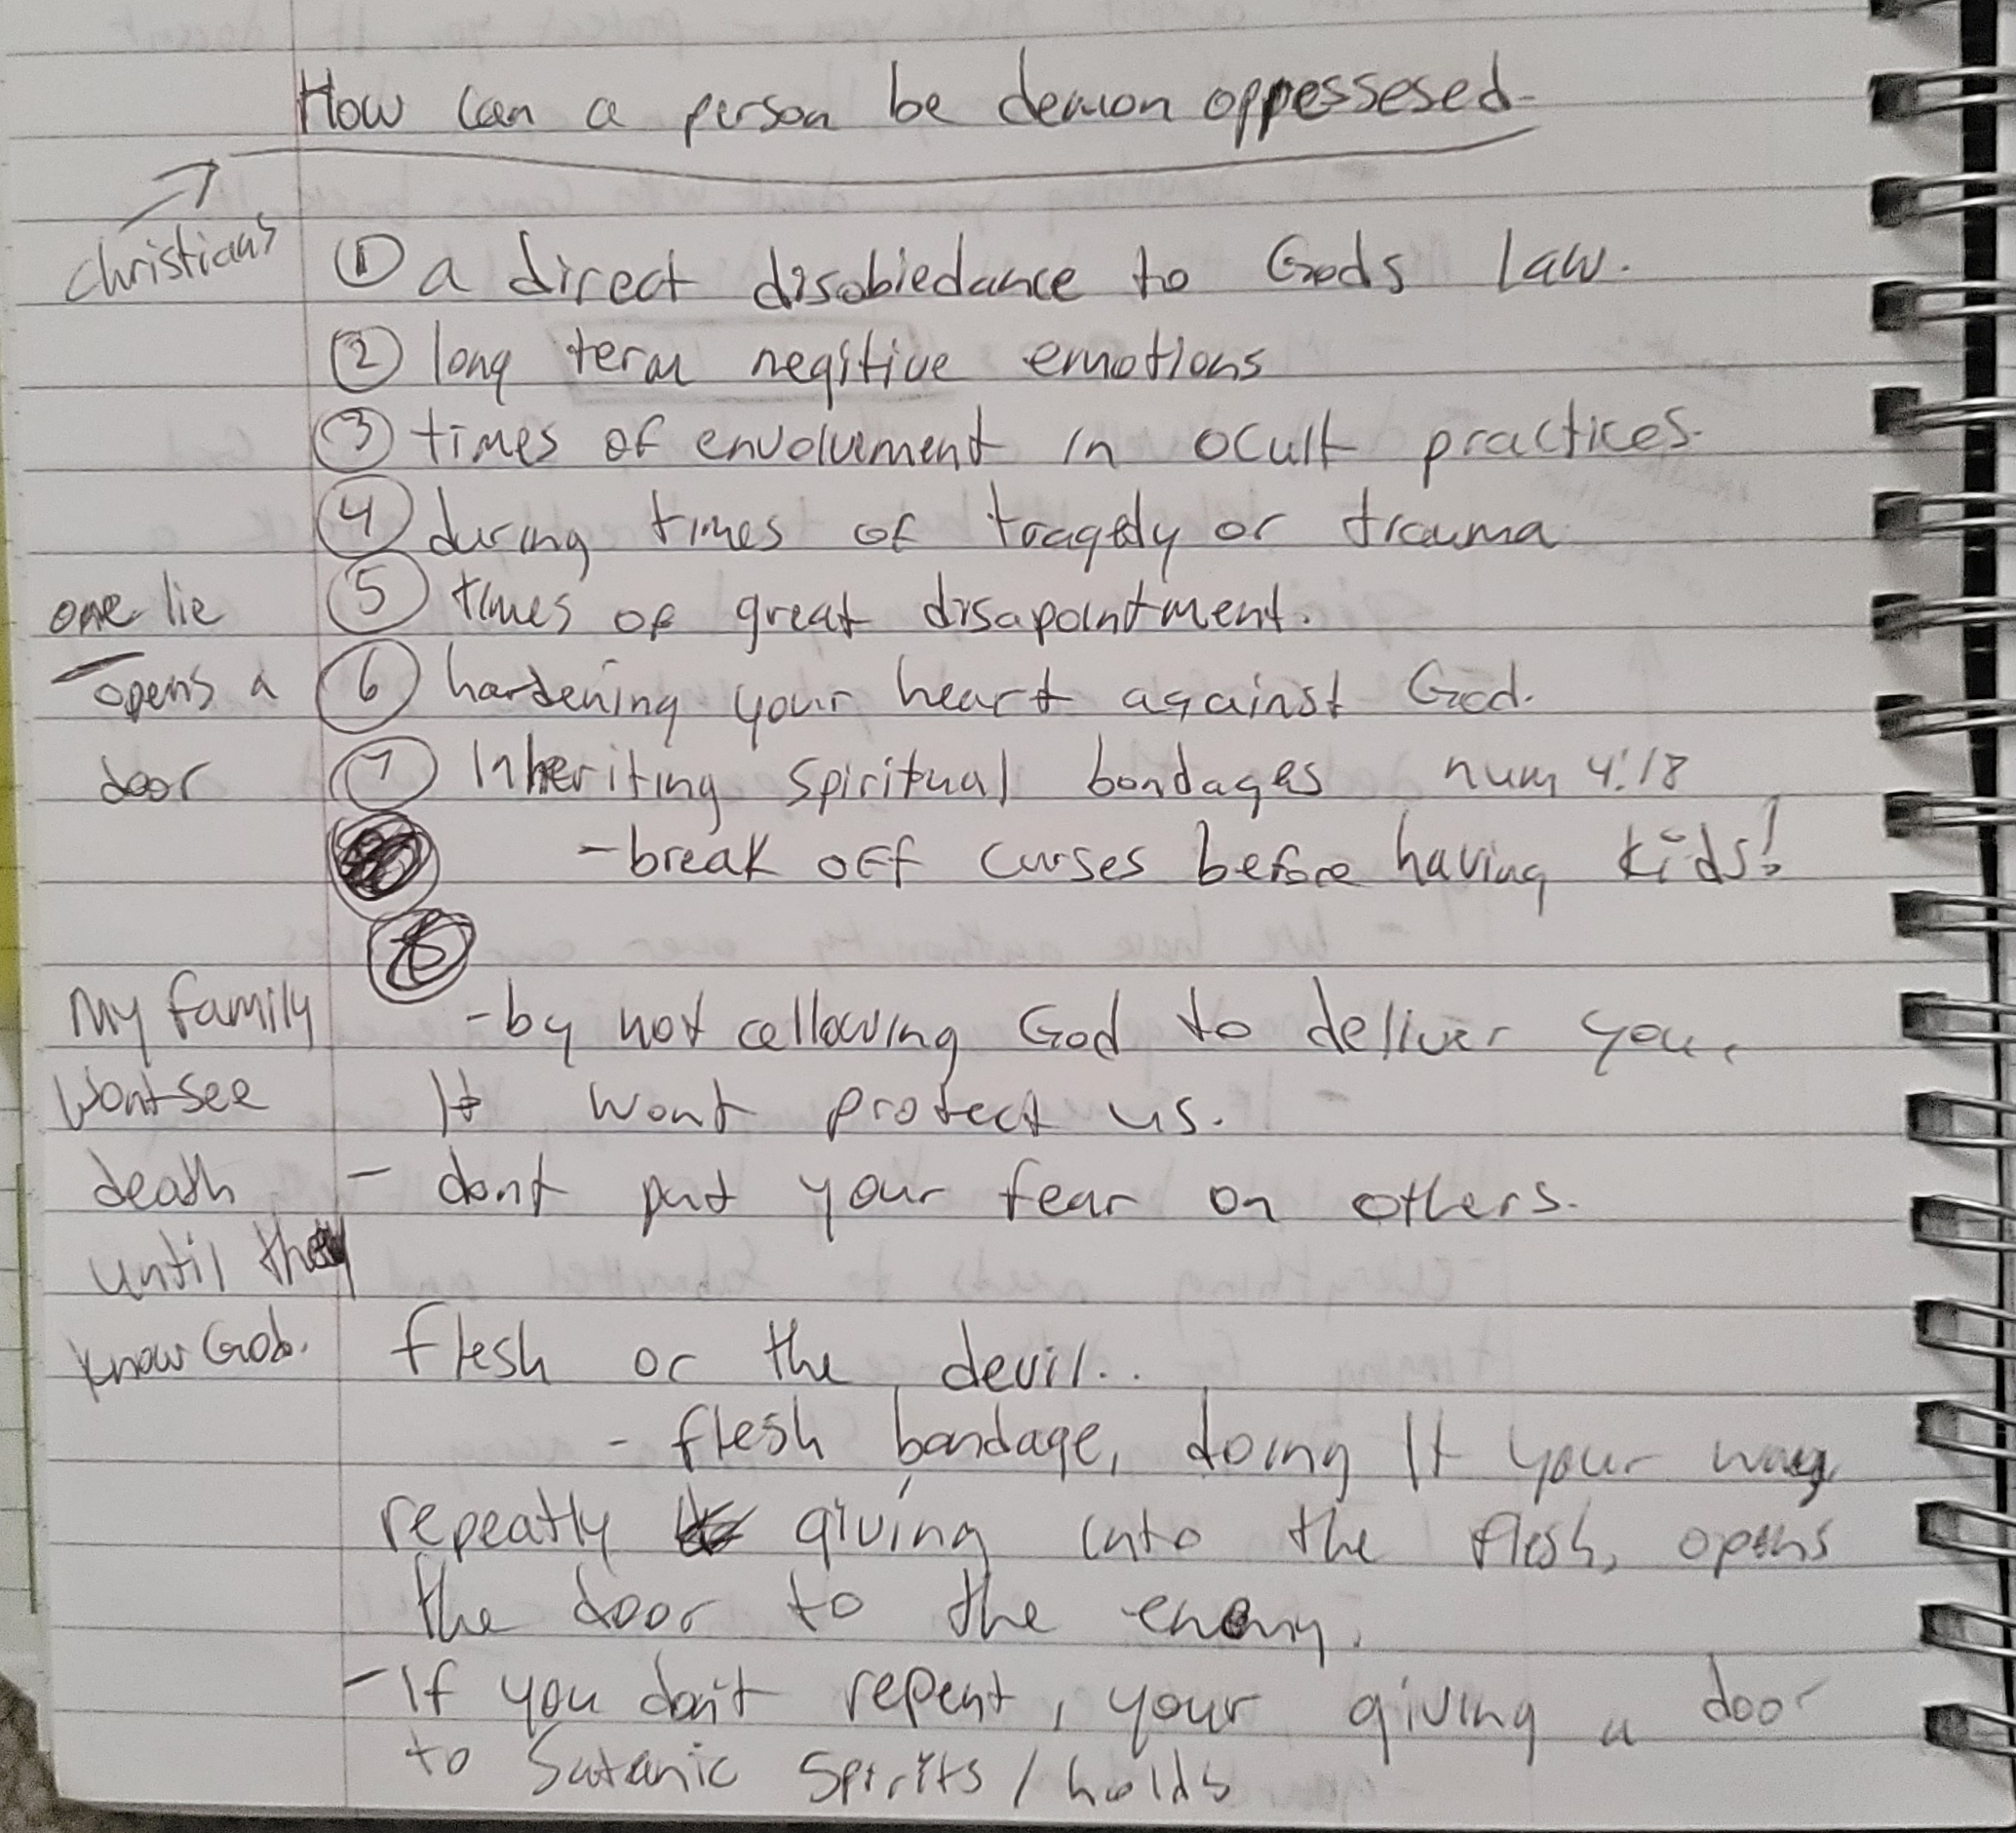 How can a person be demon oppessesed
Christians
① a direct disobiedance to Gods law.
② long term negitive emotions
③ times of envolvement in ocult practices.
④ during times of tragedy or trauma
⑤ times of great disapointment.
⑥ hardening your heart against God.
⑦ Inheriting spiritual bondages num 4:18
- break off curses before having kids!
one lie
opens a
door
- by not allowing God to deliver you,
It wont protect us.
- dont put your fear on others.
My family
Wont see
death
until they
know God.
flesh or the devil..
- flesh bondage, doing It your way,
repeatly giving into the flesh, opens
the door to the enemy.
- If you don't repent, your giving a door
to Satanic Spirits / holds